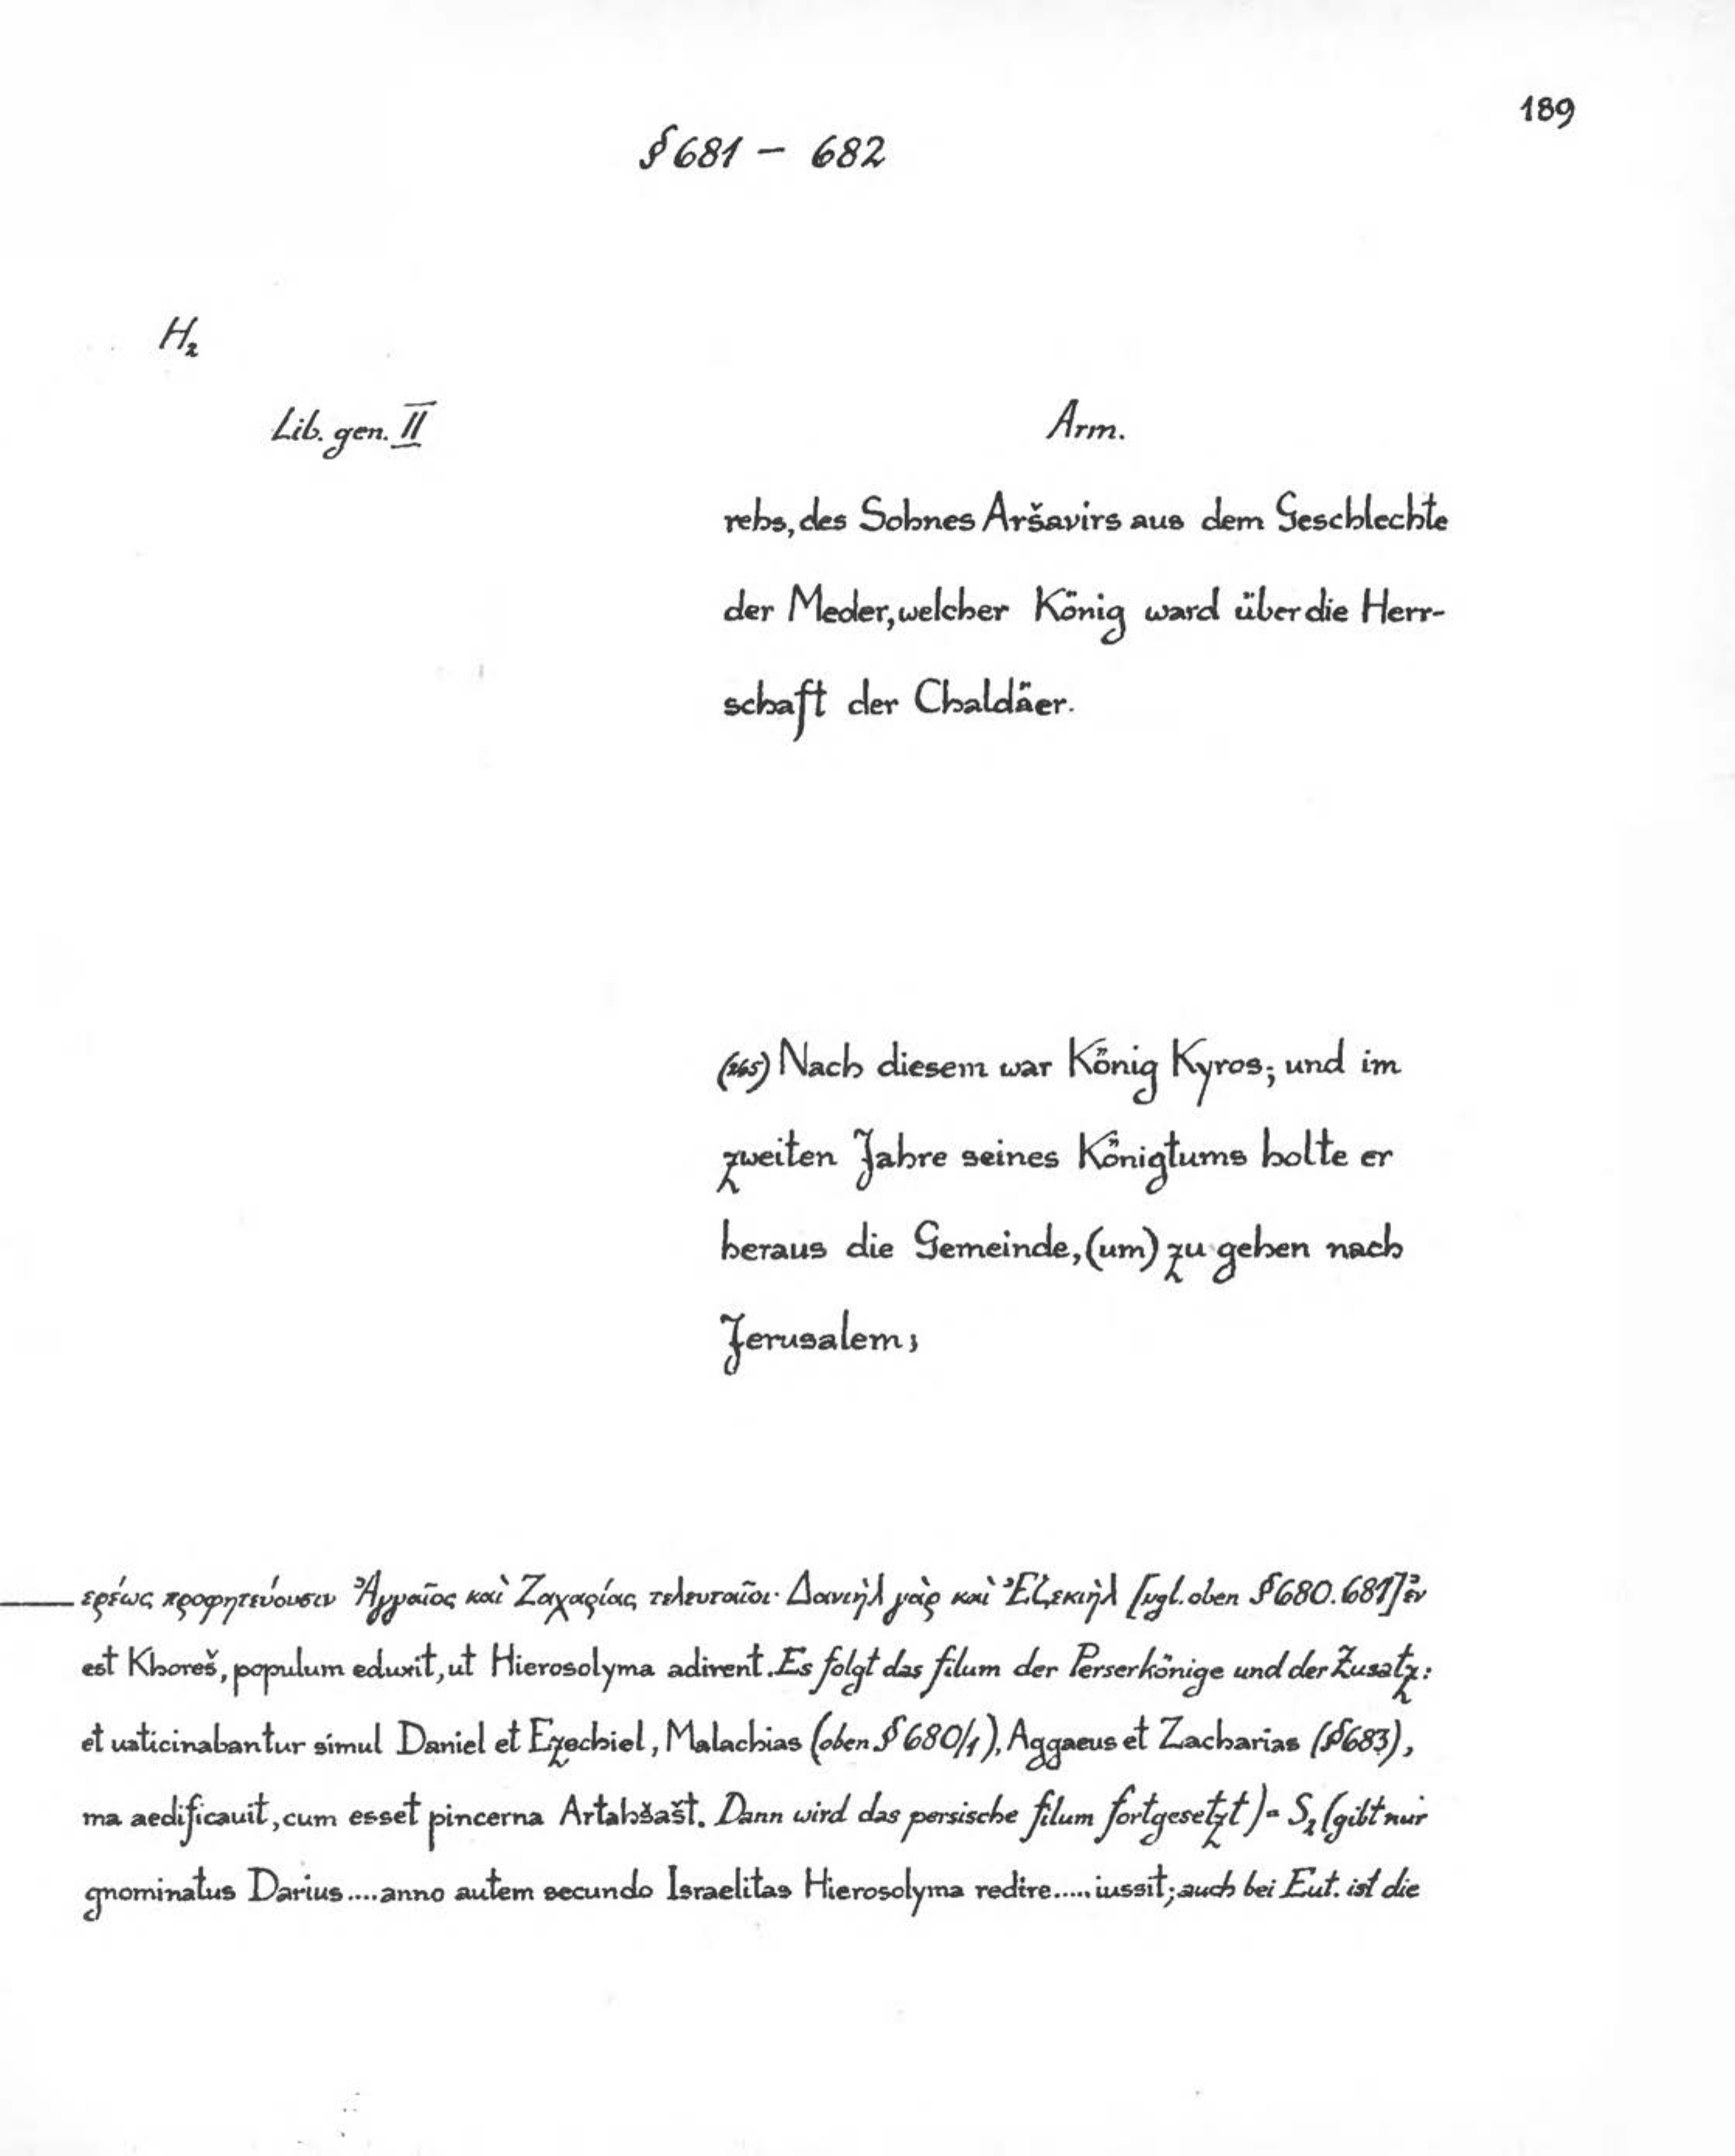 189
§ 681 – 682
H₂
Lib. gen. II
Arm.
rehs, des Sohnes Aršavirs aus dem Geschlechte
der Meder, welcher König ward über die Herr-
schaft der Chaldäer.
(265) Nach diesem war König Kyros; und im
zweiten Jahre seines Königtums holte er
heraus die Gemeinde, (um) zu gehen nach
Jerusalem;
ερέως προφητεύουσιν Ἀγγαῖος καὶ Ζαχαρίας τελευταῖοι· Δανιὴλ γὰρ καὶ Ἐζεκιὴλ [vgl. oben § 680. 681] ἐν
est Khoreš, populum eduxit, ut Hierosolyma adirent. Es folgt das filum der Perserkönige und der Zusatz:
et uaticinabantur simul Daniel et Ezechiel, Malachias (oben § 680/1), Aggaeus et Zacharias (§ 683),
ma aedificauit, cum esset pincerna Artahšašt. Dann wird das persische filum fortgesetzt) = S₂ (gibt nur
gnominatus Darius .... anno autem secundo Israelitas Hierosolyma redire ..... iussit; auch bei Eut. ist die